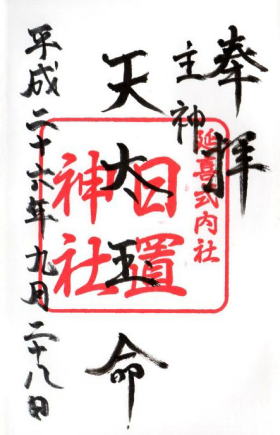 奉拝
主神
天太玉命
延喜式内社
日置神社
平成二十六年九月二十八日